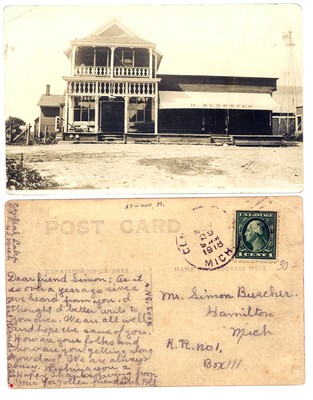 H. KLOOSTER
ATWOOD
ATWOOD, M.
POST CARD
CORRESPONDENCE HERE
NAME AND ADDRESS HERE
MICH
1 CENT 1
30
Dear friend Simon: As it
is over a year ago since
we heard from you. I
thought I'd better write to
you once. We are all well
and hope the same of you.
How are your folks and
how are you getting along
now days? We are always
busy. Wishing you a
Happy Thanksgiving from
Your forgotten friend
Mr. Simon Buscher.
Hamilton
Mich
R.R. No 1,
Box 111.